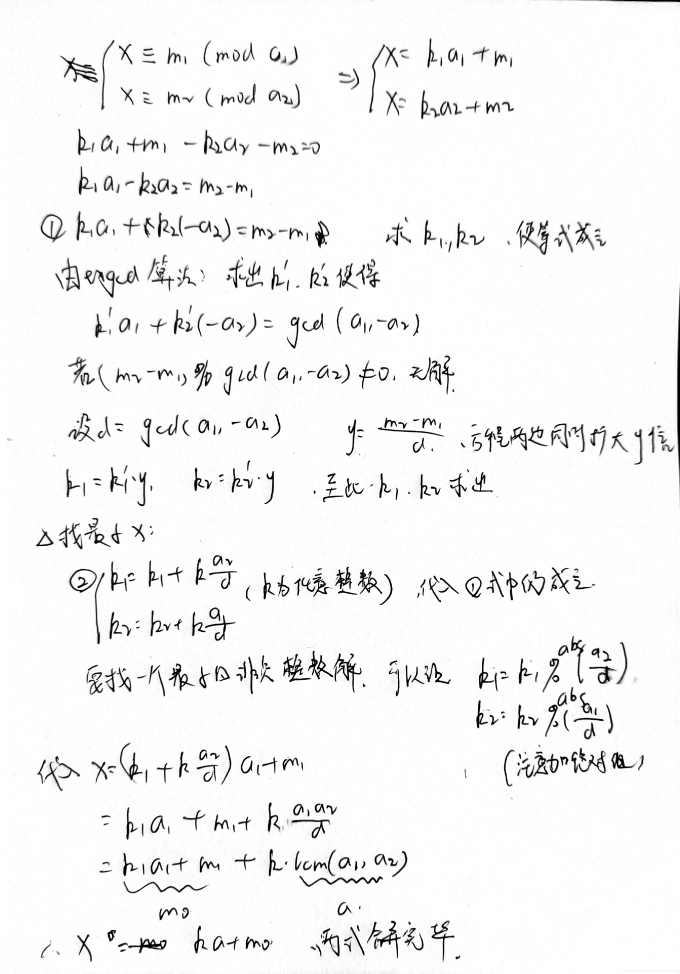 { x ≡ m₁ (mod a₁)  ⇒ { x = k₁a₁ + m₁
x ≡ m₂ (mod a₂)  x = k₂a₂ + m₂
k₁a₁ + m₁ - k₂a₂ - m₂ = 0
k₁a₁ - k₂a₂ = m₂ - m₁
① k₁a₁ + k₂(-a₂) = m₂ - m₁ 求 k₁, k₂ 使等式成立
由exgcd 算法: 求出 k₁'. k₂' 使得
k₁'a₁ + k₂'(-a₂) = gcd (a₁, -a₂)
若(m₂ - m₁) % gcd(a₁, -a₂) ≠ 0. 无解.
设d = gcd(a₁, -a₂) y = (m₂-m₁)/d. 方程两边同时扩大y倍
k₁ = k₁'·y, k₂ = k₂'·y . 至此. k₁. k₂ 求出
△ 找最小 x:
② { k₁ = k₁ + k a₂/d (k为任意整数) 代入①式中仍成立.
k₂ = k₂ + k a₁/d
要找一个最小的非负整数解. 可以让 k₁ = k₁ % abs(a₂/d)
k₂ = k₂ % abs(a₁/d)
(注意加绝对值)
代入 x = (k₁ + k a₂/d) a₁ + m₁
= k₁a₁ + m₁ + k a₁a₂/d
= k₁a₁ + m₁ + k·lcm(a₁, a₂)
m₀ a.
∴ x = ka + m₀ 两式合并完毕.